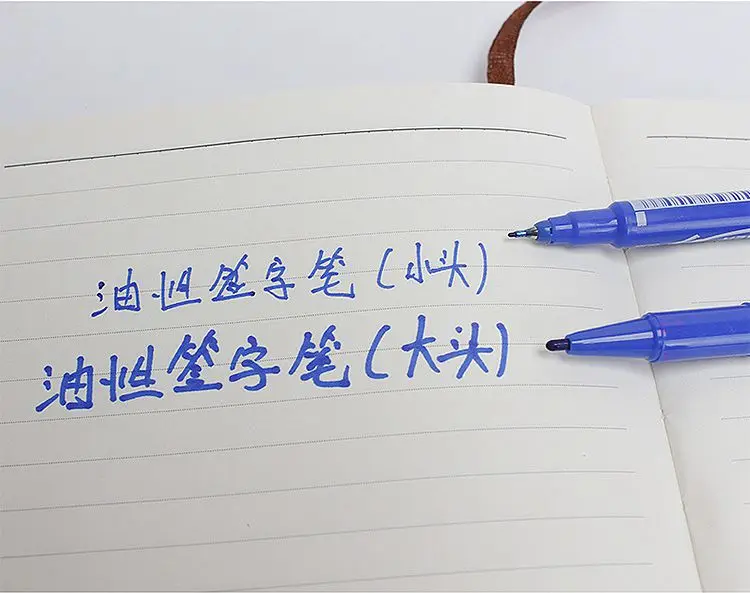 油性签字笔(小头)
油性签字笔(大头)